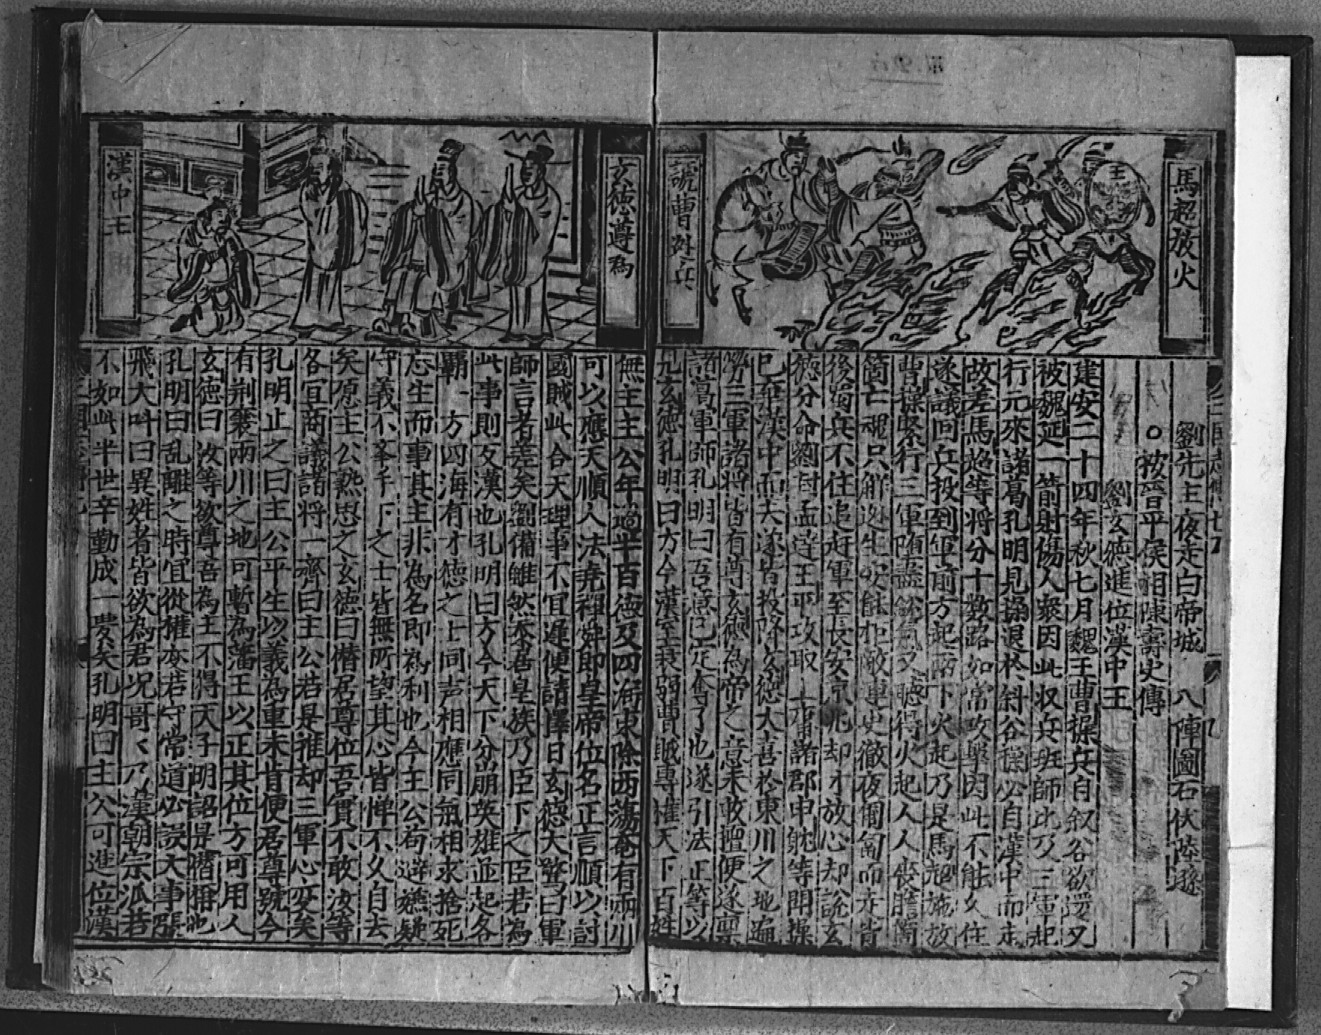 馬超放火
諕曹操兵
劉先主夜走白帝城　八陣圖石伏陸遜
○按晉平侯相陳壽史傳
劉玄德進位漢中王
建安二十四年秋七月魏王曹操兵自敘谷欲還又
被魏延一箭射傷人衆因此收兵班師此乃三軍起
行元來諸葛孔明見操退於斜谷操必自漢中而走
故差馬超等將分十數路如常攻擊因此不能久住
遂議回兵投到軍前方起兩下火起乃是馬超施放
曹操緊行三軍墮盡銳氣又聽得火起人人喪膽
亡魂只辦逃生
後面兵不住追赶軍至長安
却才放心却說玄
德分命劉封孟達王平攻取
諸郡申耽等聞操
已棄漢中而去遂皆投降玄德大喜於東川之地遍
勞三軍諸將皆有尊玄德為帝之意未敢擅便遂稟
諸葛軍師孔明曰吾意已定奪了也遂引法正等以
見玄德孔明曰方今漢室衰弱曹賊專權天下百姓
玄德尊為
漢中王
無主主公年過半百德及四海東除西蕩奄有兩川
可以應天順人法堯禪舜即皇帝位名正言順以討
國賊此合天理事不宜遲便請擇日玄德大驚曰軍
師言者差矣劉備雖然本者皇族乃臣下之臣若為
此事則反漢也孔明曰方今天下分崩英雄並起各
覇一方四海有才德之士同声相應同氣相求捨死
忘生而事其主非為名即為利也今主公苟避嫌疑
守義不
手下之士皆無所望其心皆憚不久自去
矣愿主公熟思之玄德曰僭居尊位吾實不敢汝等
各宜商議諸將一齊曰主公若是推却三軍心変矣
孔明止之曰主公平生以義為重未肯便居尊號今
有荆襄兩川之地可暫為藩王以正其位方可用人
玄德曰汝等欲尊吾為王不得天子明詔是僭
也
孔明曰乱離之時宜從權亦若守常道必誤大事張
飛大叫曰異姓者皆欲為君况哥〻乃漢朝宗派若
不如此半世辛勤成一
矣孔明曰主公可進位漢